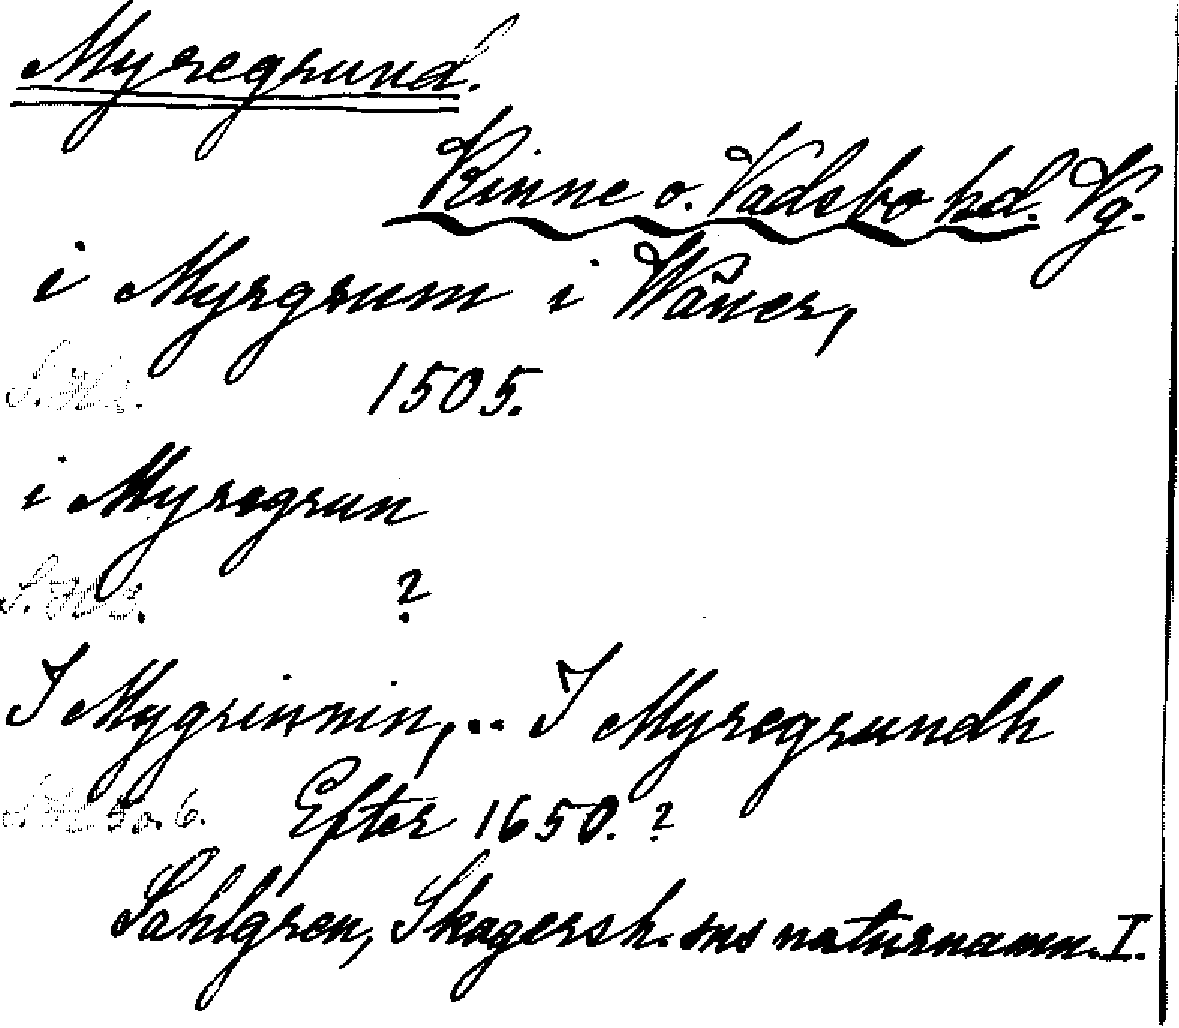 Myregrund.
Kinne o. Vadsbo hd. Vg.
i Myrgrum i Wäner,
1505.
i Myregrun
?
I Mygrinnin,.. I Myregrundh
6. Efter 1650.?
Sahlgren, Skagersh. sns naturnamn. I.